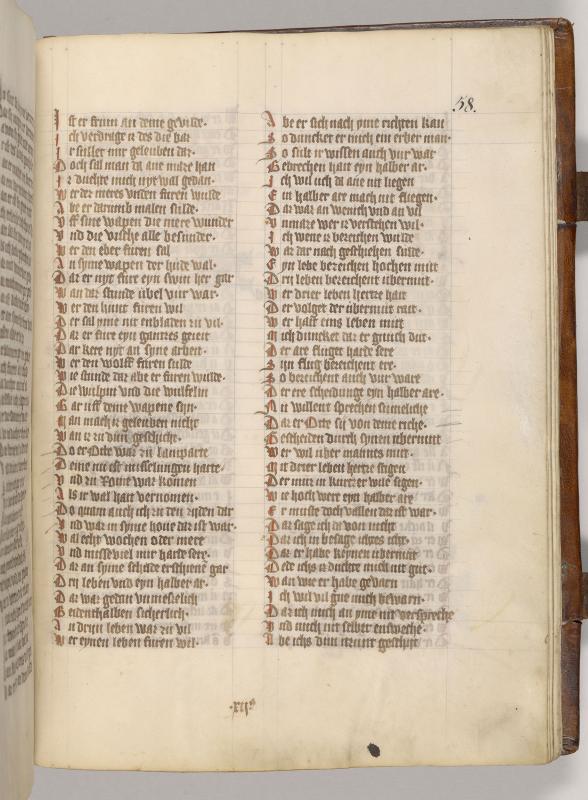 58.
I st er frum an deme gevilde.
I ch verdrage u des die bas
I r sullet mir geleuben das.
D och sal man da ane maze han
I z duchte mich nyt wal gedan.
W er der meres visden furen wulde
A be er darumb malen sulde.
V ff sine wapen die mere wunder
V nd die vische alle besunder.
W er den eber furen sal
A n syme wapen der hude wal.
D az er nyt fure eyn swin her gar
W an daz stunde ubel vur war.
W er den hunt furen wil
D er sal yme nit enbladen zu vil.
D az er fure eyn ganczes gereit
D ar kere nyt an syne arbeit.
W er den wolff furen sulde
W ie stunde daz abe er furen wulde.
D ie wulpin und die wulfelin
G ar uff deme wapene syn.
M an mach iz geleuben nicht
W an iz zu dum geschicht.
D o er Otte was zu lamparte
D eme nu ist misselungen harte.
V nd zu Rome was komen
A ls ir wal hait vernomen.
D o quam auch ich zu den ziden dar
V nd was in syme hove daz ist war.
W al echt wochen oder mere
V nd misseviel mir harde sere.
D az an syme schilde erschiene gar
D ry leben und eyn halber ar.
D az was gedan unmeselich
B eidenthalben sicherlich.
A n dryn leben was zu vil
W er eynen leben furen wil.
A be er sich nach yme richten kan
S o duncket er mich ein erber man.
S o sult ir wissen auch vur war
G ebrechen hait eyn halber ar.
I ch wil uch da ane nit liegen
E in halber are mach nit fliegen.
D az was an wenich und an vil
V nmaze wer iz verstehen wil.
I ch wene iz bezeichen wulde
W az dar nach geschiehen sulde.
E yn lebe bezeichen hochen mut
D ry leben bezeichent ubermut.
W er drier leben hercze hait
D er volget der ubermut rait.
W er hait eins leben mut
M ich duncket daz er gnuch dut.
D er are fluget harde sere
S yn flug bezeichent ere.
S o bezeichent auch vur ware
D er ere scheidunge eyn halber are.
N u willent sprechen sumeliche
D az er Otte sij von deme riche.
G escheiden durch synen ubermut
W er wil uber mannes mut.
M it drier leben hercze stigen
D er muz in kurczer wile sigen.
W ie hoch were eyn halber are
E r muste doch vallen daz ist war.
D az sage ich da von nicht
D az ich in besage ichtes icht.
D az er habe keynen ubermut
D ede ichs iz duchte mich nit gut.
W an wie er habe gevarn
I ch wil vil gne mich bewarn.
D az ich mich an yme nit verspreche
V nd mich nit selber ensweche.
A be ichs dun mznit geschiet
.xij.